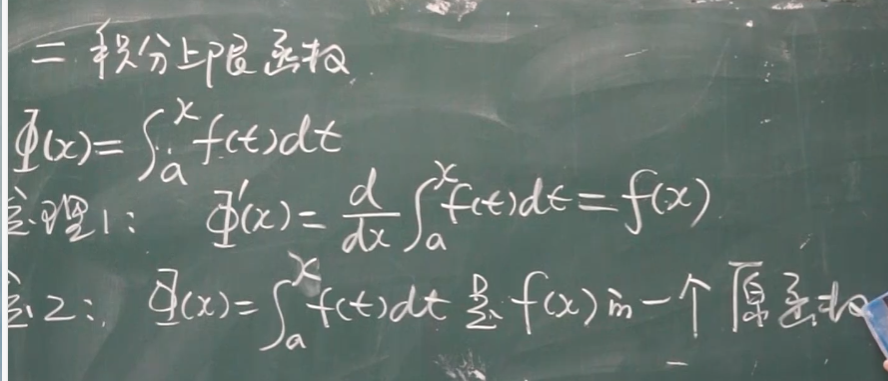 二 积分上限函数
Φ(x)=∫ₐˣ f(t)dt
定理1: Φ'(x)=d/dx ∫ₐˣ f(t)dt=f(x)
定2: Φ(x)=∫ₐˣ f(t)dt 是 f(x) 的一个原函数